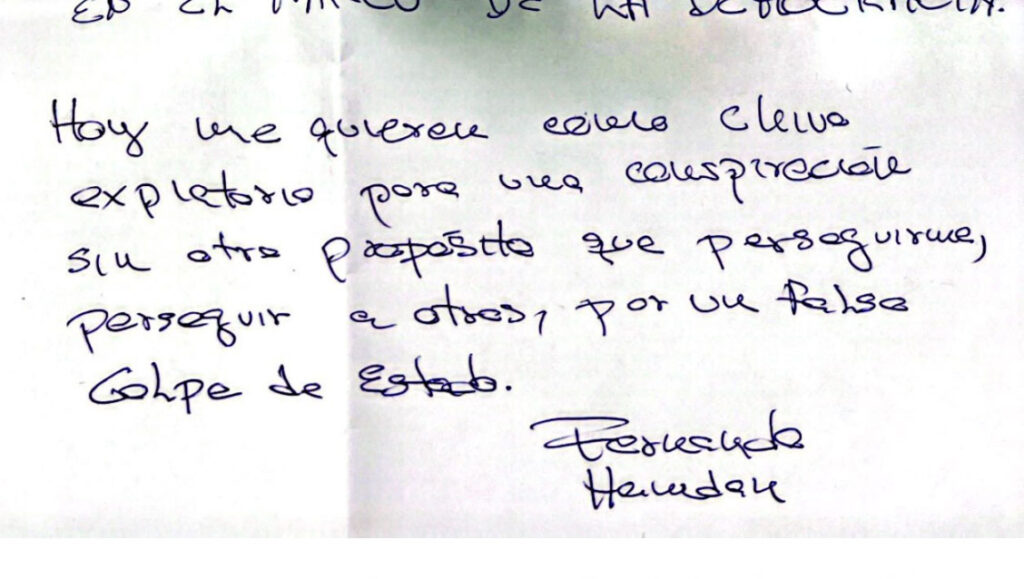 EN EL MARCO DE LA DEMOCRACIA.
Hoy me quieren como chivo
expiatorio para una conspiración
sin otro propósito que perseguirme,
perseguir a otros, por un falso
Golpe de Estado.
Fernando
Hamdan